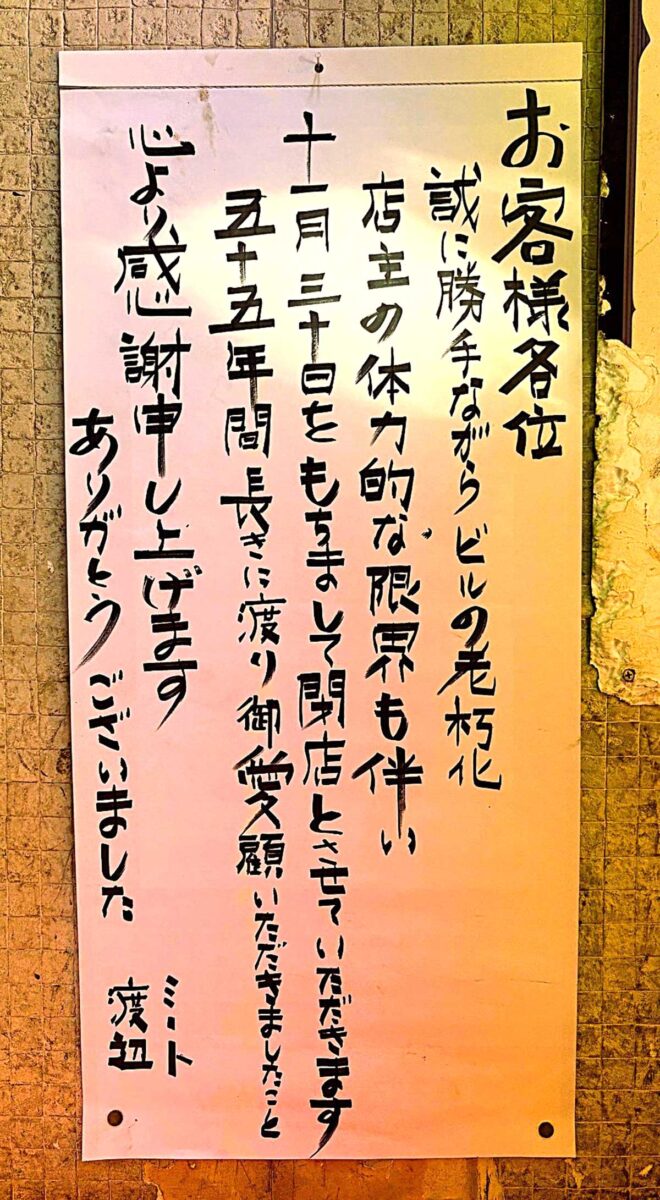 お客様各位
誠に勝手ながらビルの老朽化
店主の体力的な限界も伴い
十一月三十日をもちまして閉店とさせていただきます
五十五年間長きに渡り御愛顧いただきましたこと
心より感謝申し上げます
ありがとうございました
ミート
渡辺